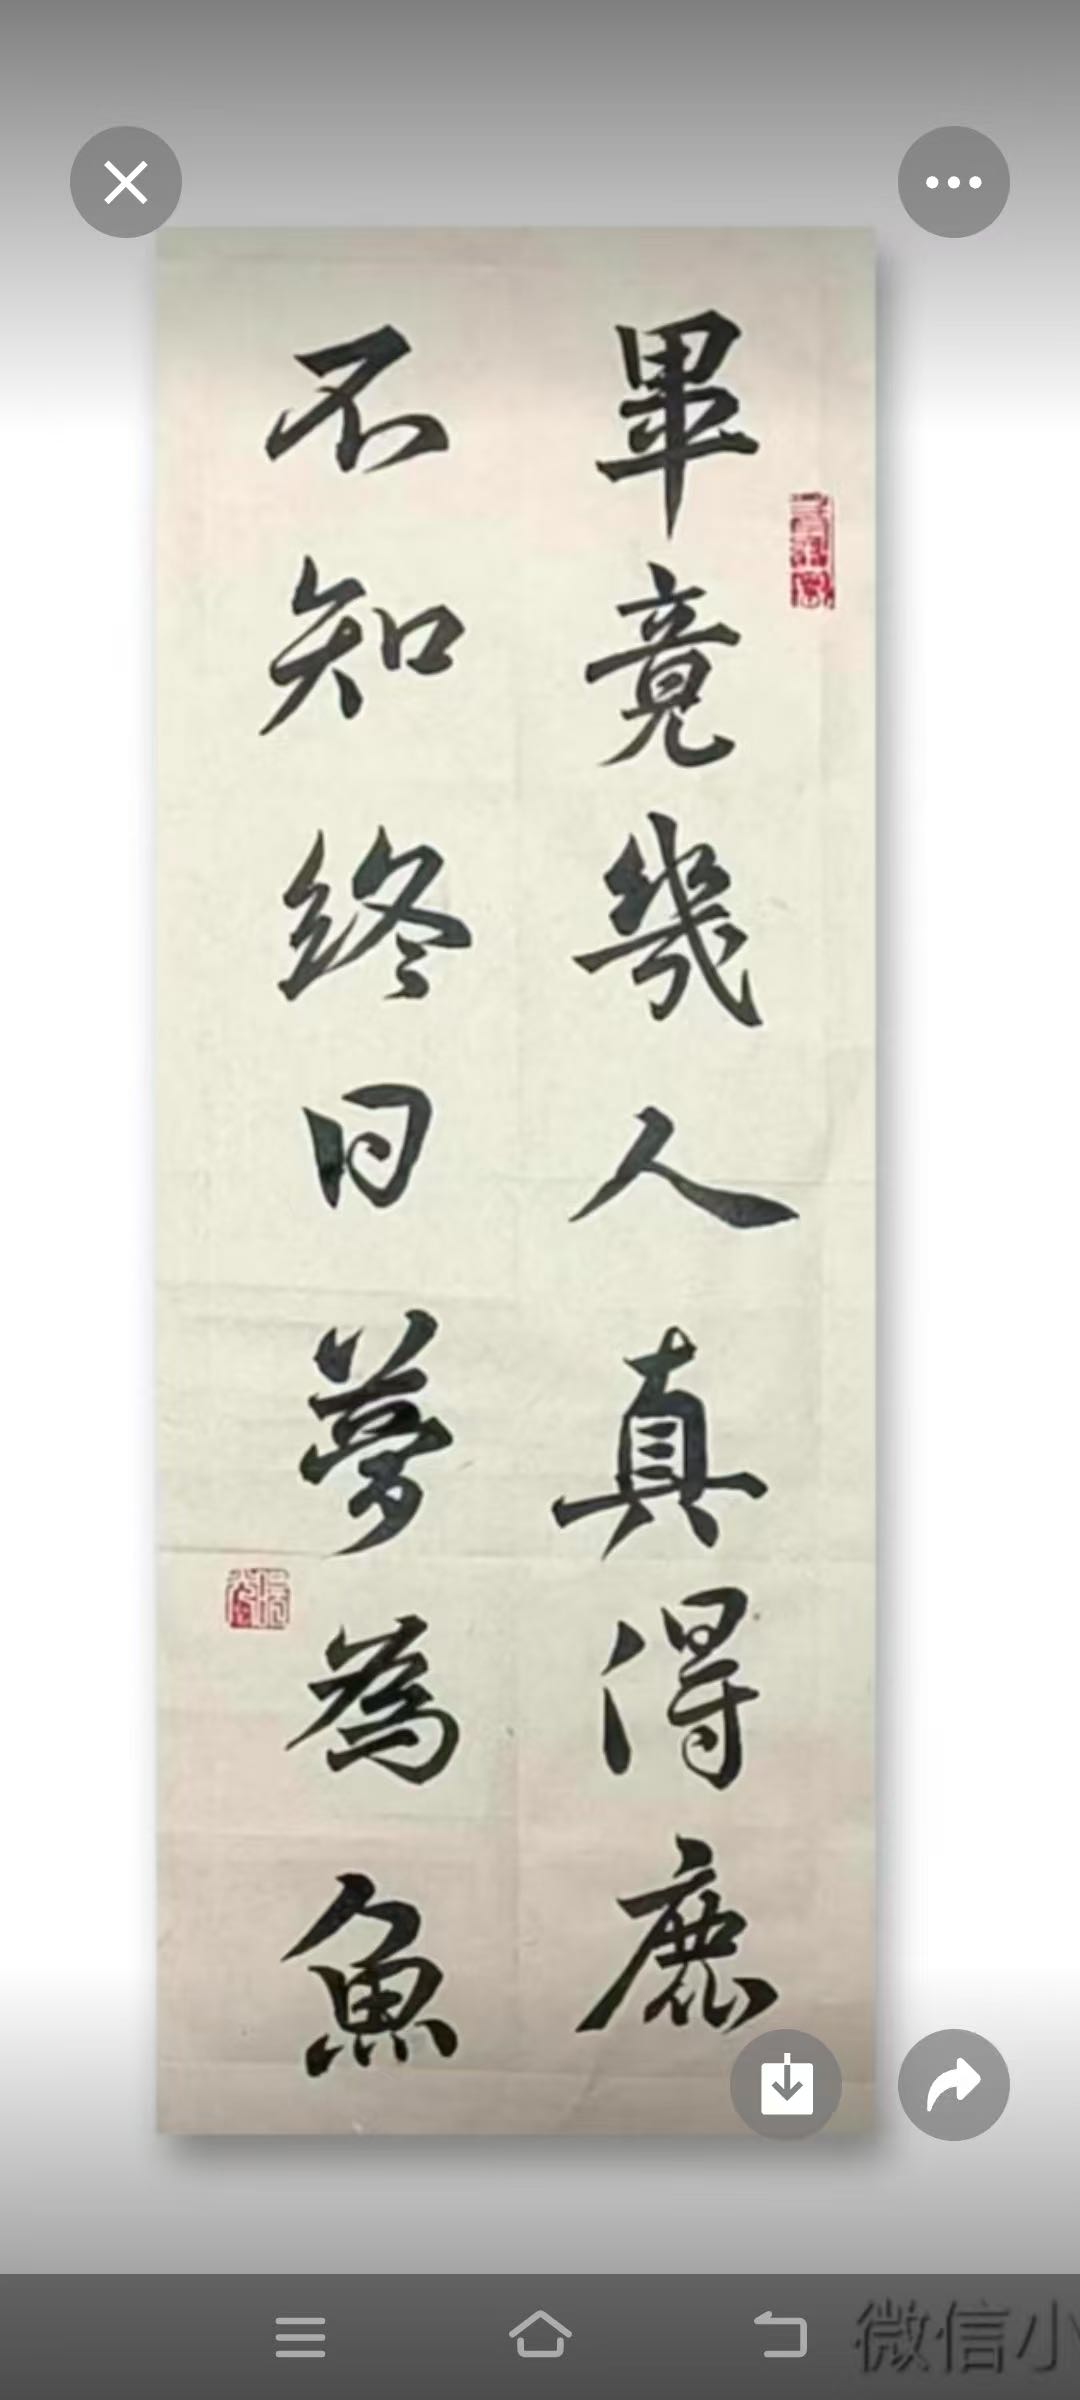 畢竟幾人真得鹿
不知終日夢為魚
微信小